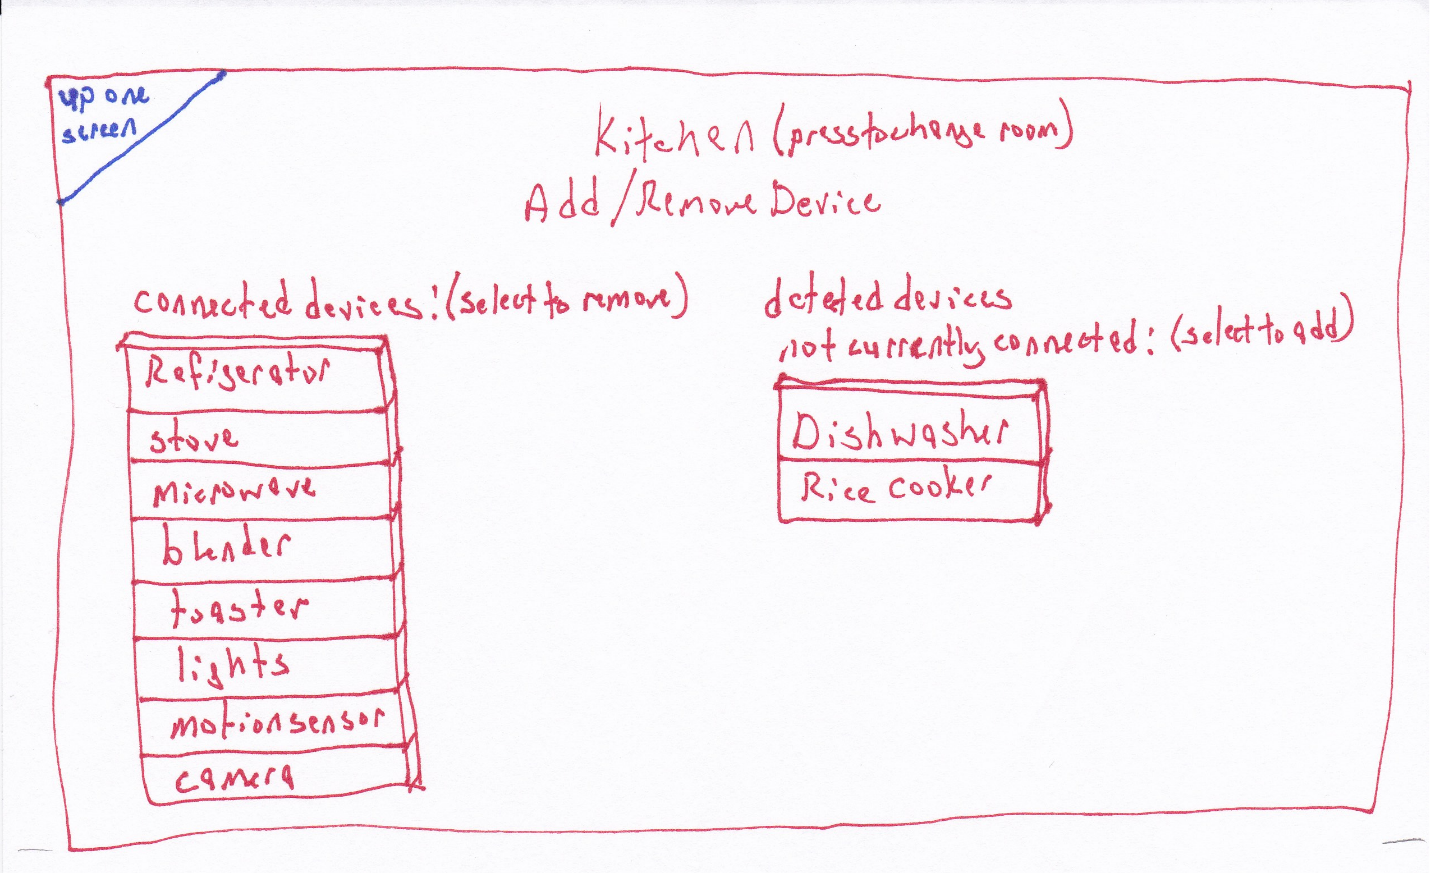 up one
screen
Kitchen (press to change room)
Add/Remove Device
connected devices: (select to remove)
Refigerator
stove
Microwave
blender
toaster
lights
motion sensor
camera
detected devices
not currently connected: (select to add)
Dishwasher
Rice cooker